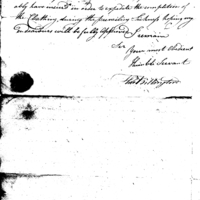 ably have incurr'd in order to expedite the completion of
the Clothing, during the preceding
Endeavours will be fully approved I remain
Sir
Your most Obedient
Humble Servant